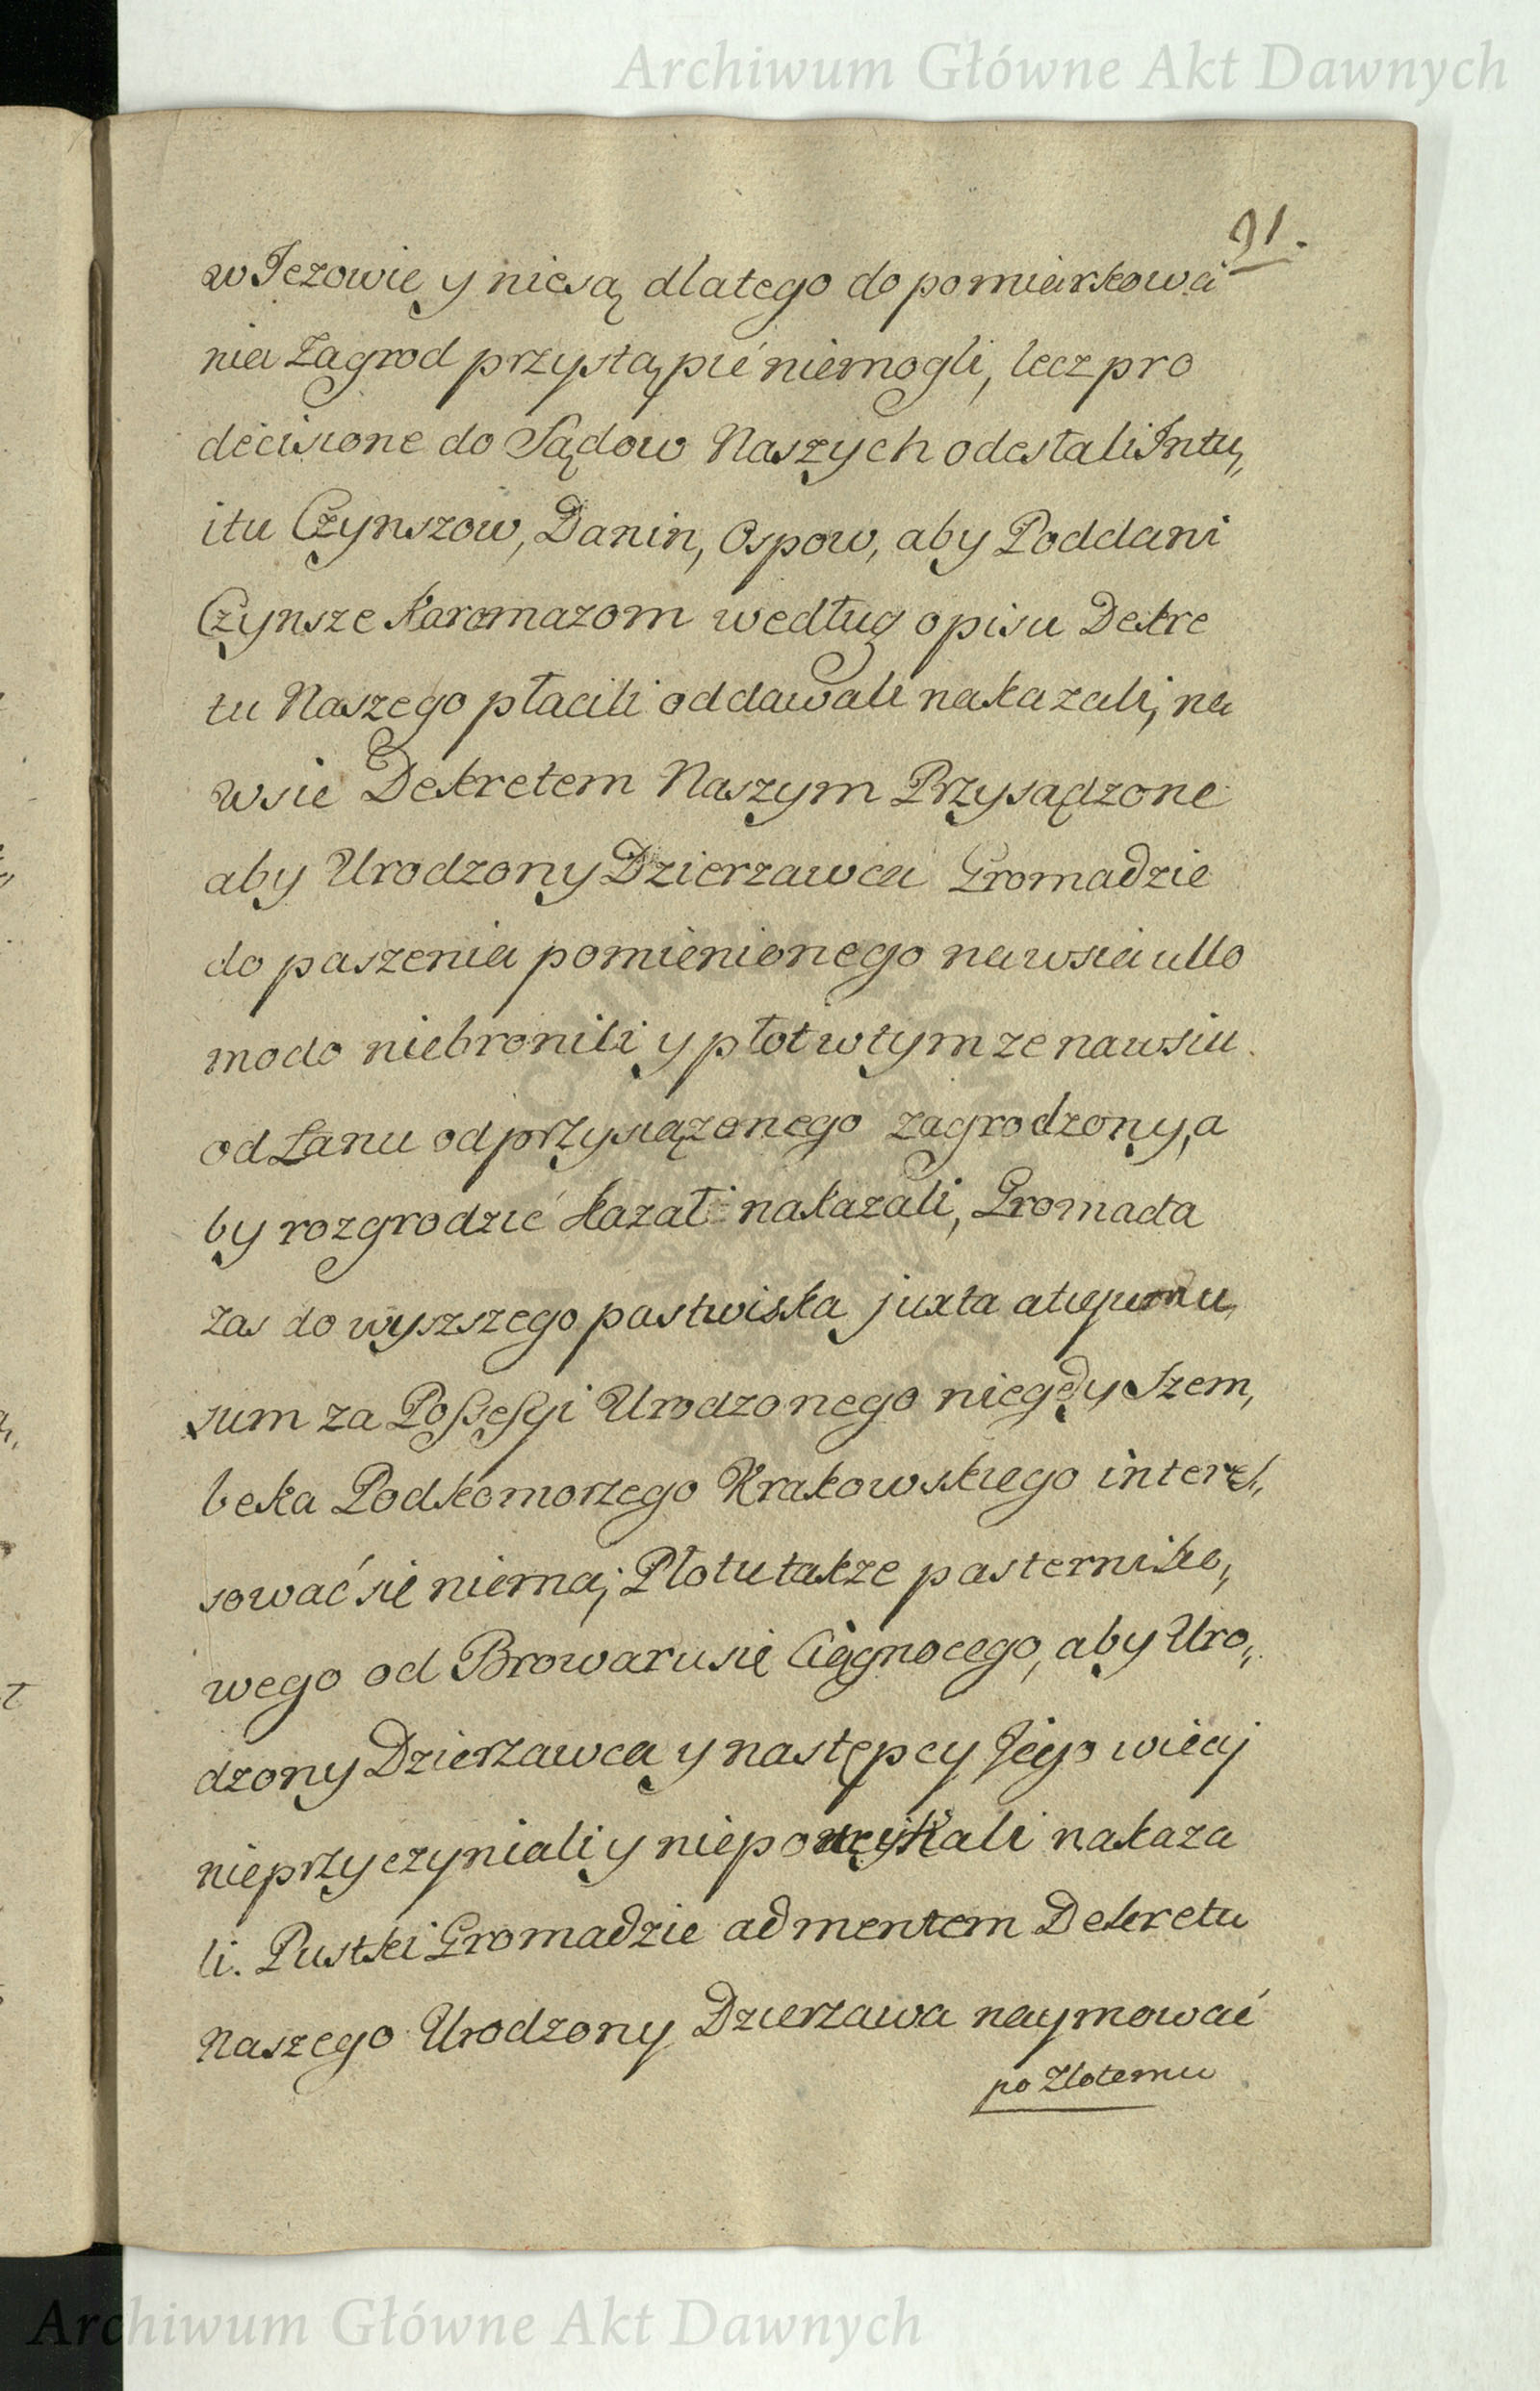 Archiwum Główne Akt Dawnych
91.
w Jezowie y niesą dlatego do pomiarkowa
nia Zagrod przystąpić niemogli, lecz pro
decisione do Sądow Naszych odesłali Intu„
itu Czynszow, Danin, Ospow, aby Poddani
Czynsze Karomazom według opisu Dekre
tu Naszego płacili oddawali nakazali, na
wsie Dekretem Naszym Przysądzone
aby Urodzony Dzierzawca Gromadzie
do paszenia pomienionego nawsia ullo
modo niebronili y płot w tymze nawsiu
od Łanu odprzysiązonego zagrodzony, a
by rozgrodzić kazał nakazali, Gromada
zas do wyszszego pastwiska juxta
sum za Possessyi Urodzonego niegdy Szem„
beka Podkomorzego Krakowskiego interes„
sować się niema; Płotu takze pasterniko„
wego od Browaru się Ciągnocego, aby Uro„
dzony Dzierzawca y następcy Jego wiecij
nieprzyczyniali y nakaza
li. Pustki Gromadzie ad mentem Dekretu
Naszego Urodzony Dzierzawa naymować
po Złotemu
Archiwum Główne Akt Dawnych